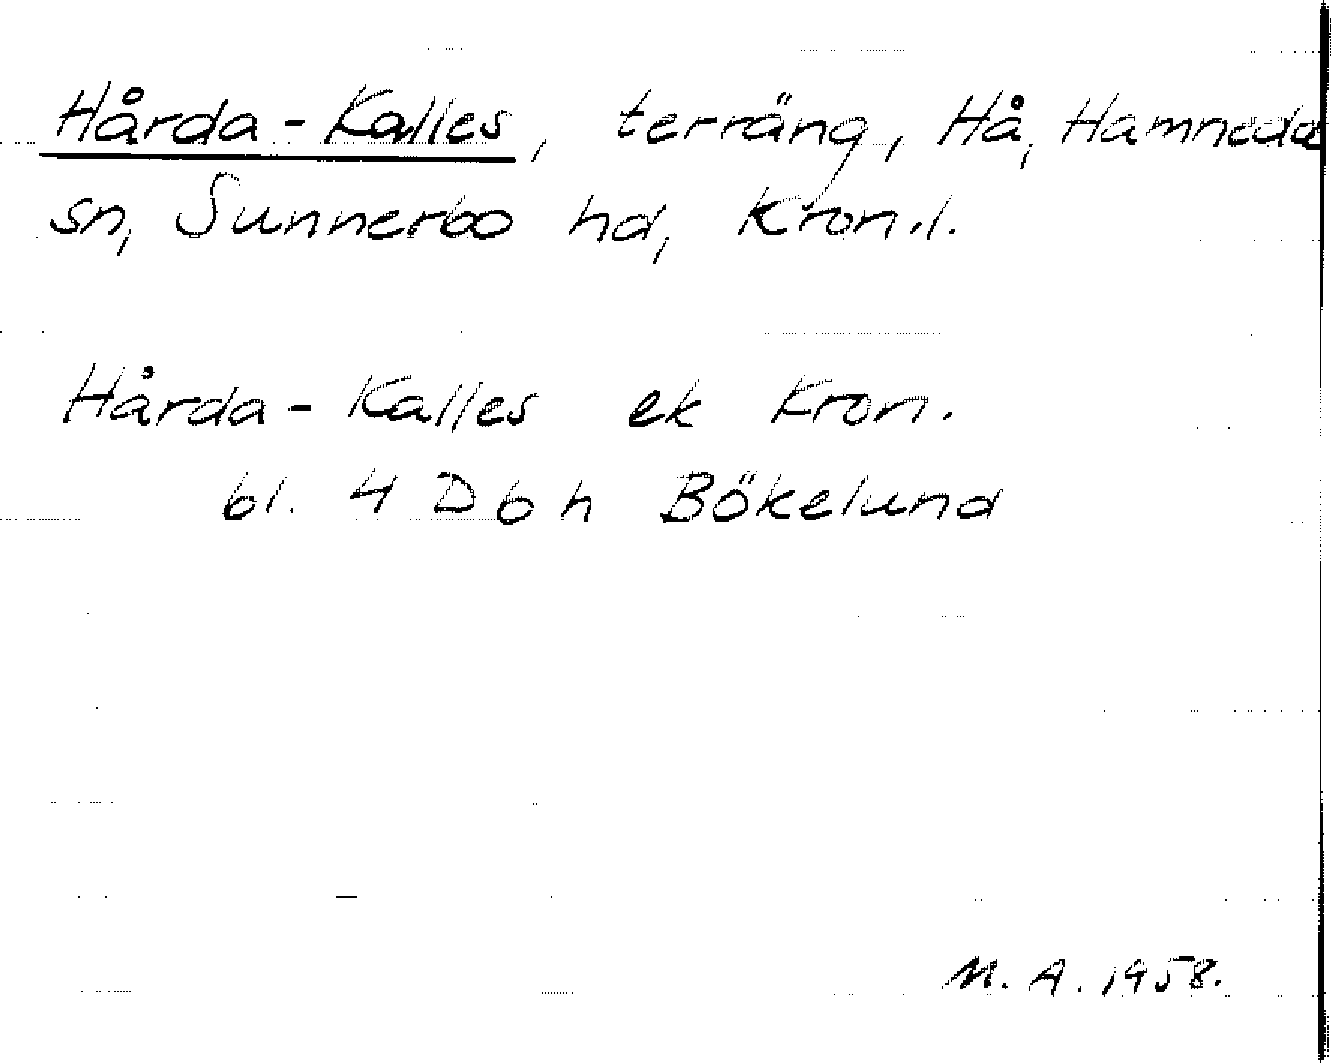 Hårda-Kalles, terräng, Hå, Hamneda
sn, Sunnerbo hd, Kron.l.
Hårda-Kalles ek Kron.
bl. 4 D 6 h Bökelund
M. A. 1958.